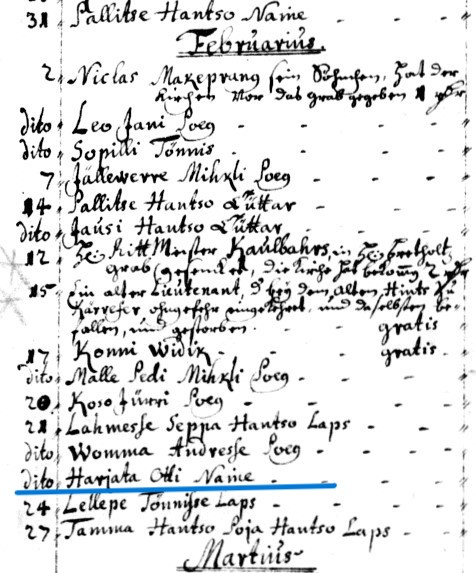 31 Pallitse Hantso Naine - - -
Februarius.
2, Niclas Makeprang sein Söhnchen, hat der
Kirchen vor das grab gegeben 1
dito, Leo Jani Poeg - - - -
dito, Sopilli Tönnis - - - -
7 Jällewerre Mihkli Poeg - - -
14 Pallitse Hantso Tüttar - - -
dito, Jausi Hantso Tüttar - - -
12 Ritt Meister Kaulbahrs, in H:
grab gesencket, die Kirche hat 2
15, Ein alter Lieutenant, bey dem alten
Karrefer ohngefehr und daselbsten
fallen, und gestorben. - gratis
17, Konni Widik - - gratis.
dito, Malle Pedi Mihkli Poeg - - -
20, Koso Jürri Poeg - - - -
21 Lahmesse Seppa Hantso Laps - -
dito, Womma Andresse Poeg - - -
dito, Harjata Otti Naine - - -
24 Lellepe Tönnisse Laps - - -
27, Tamma Hantso Poja Hantso Laps -
Martius